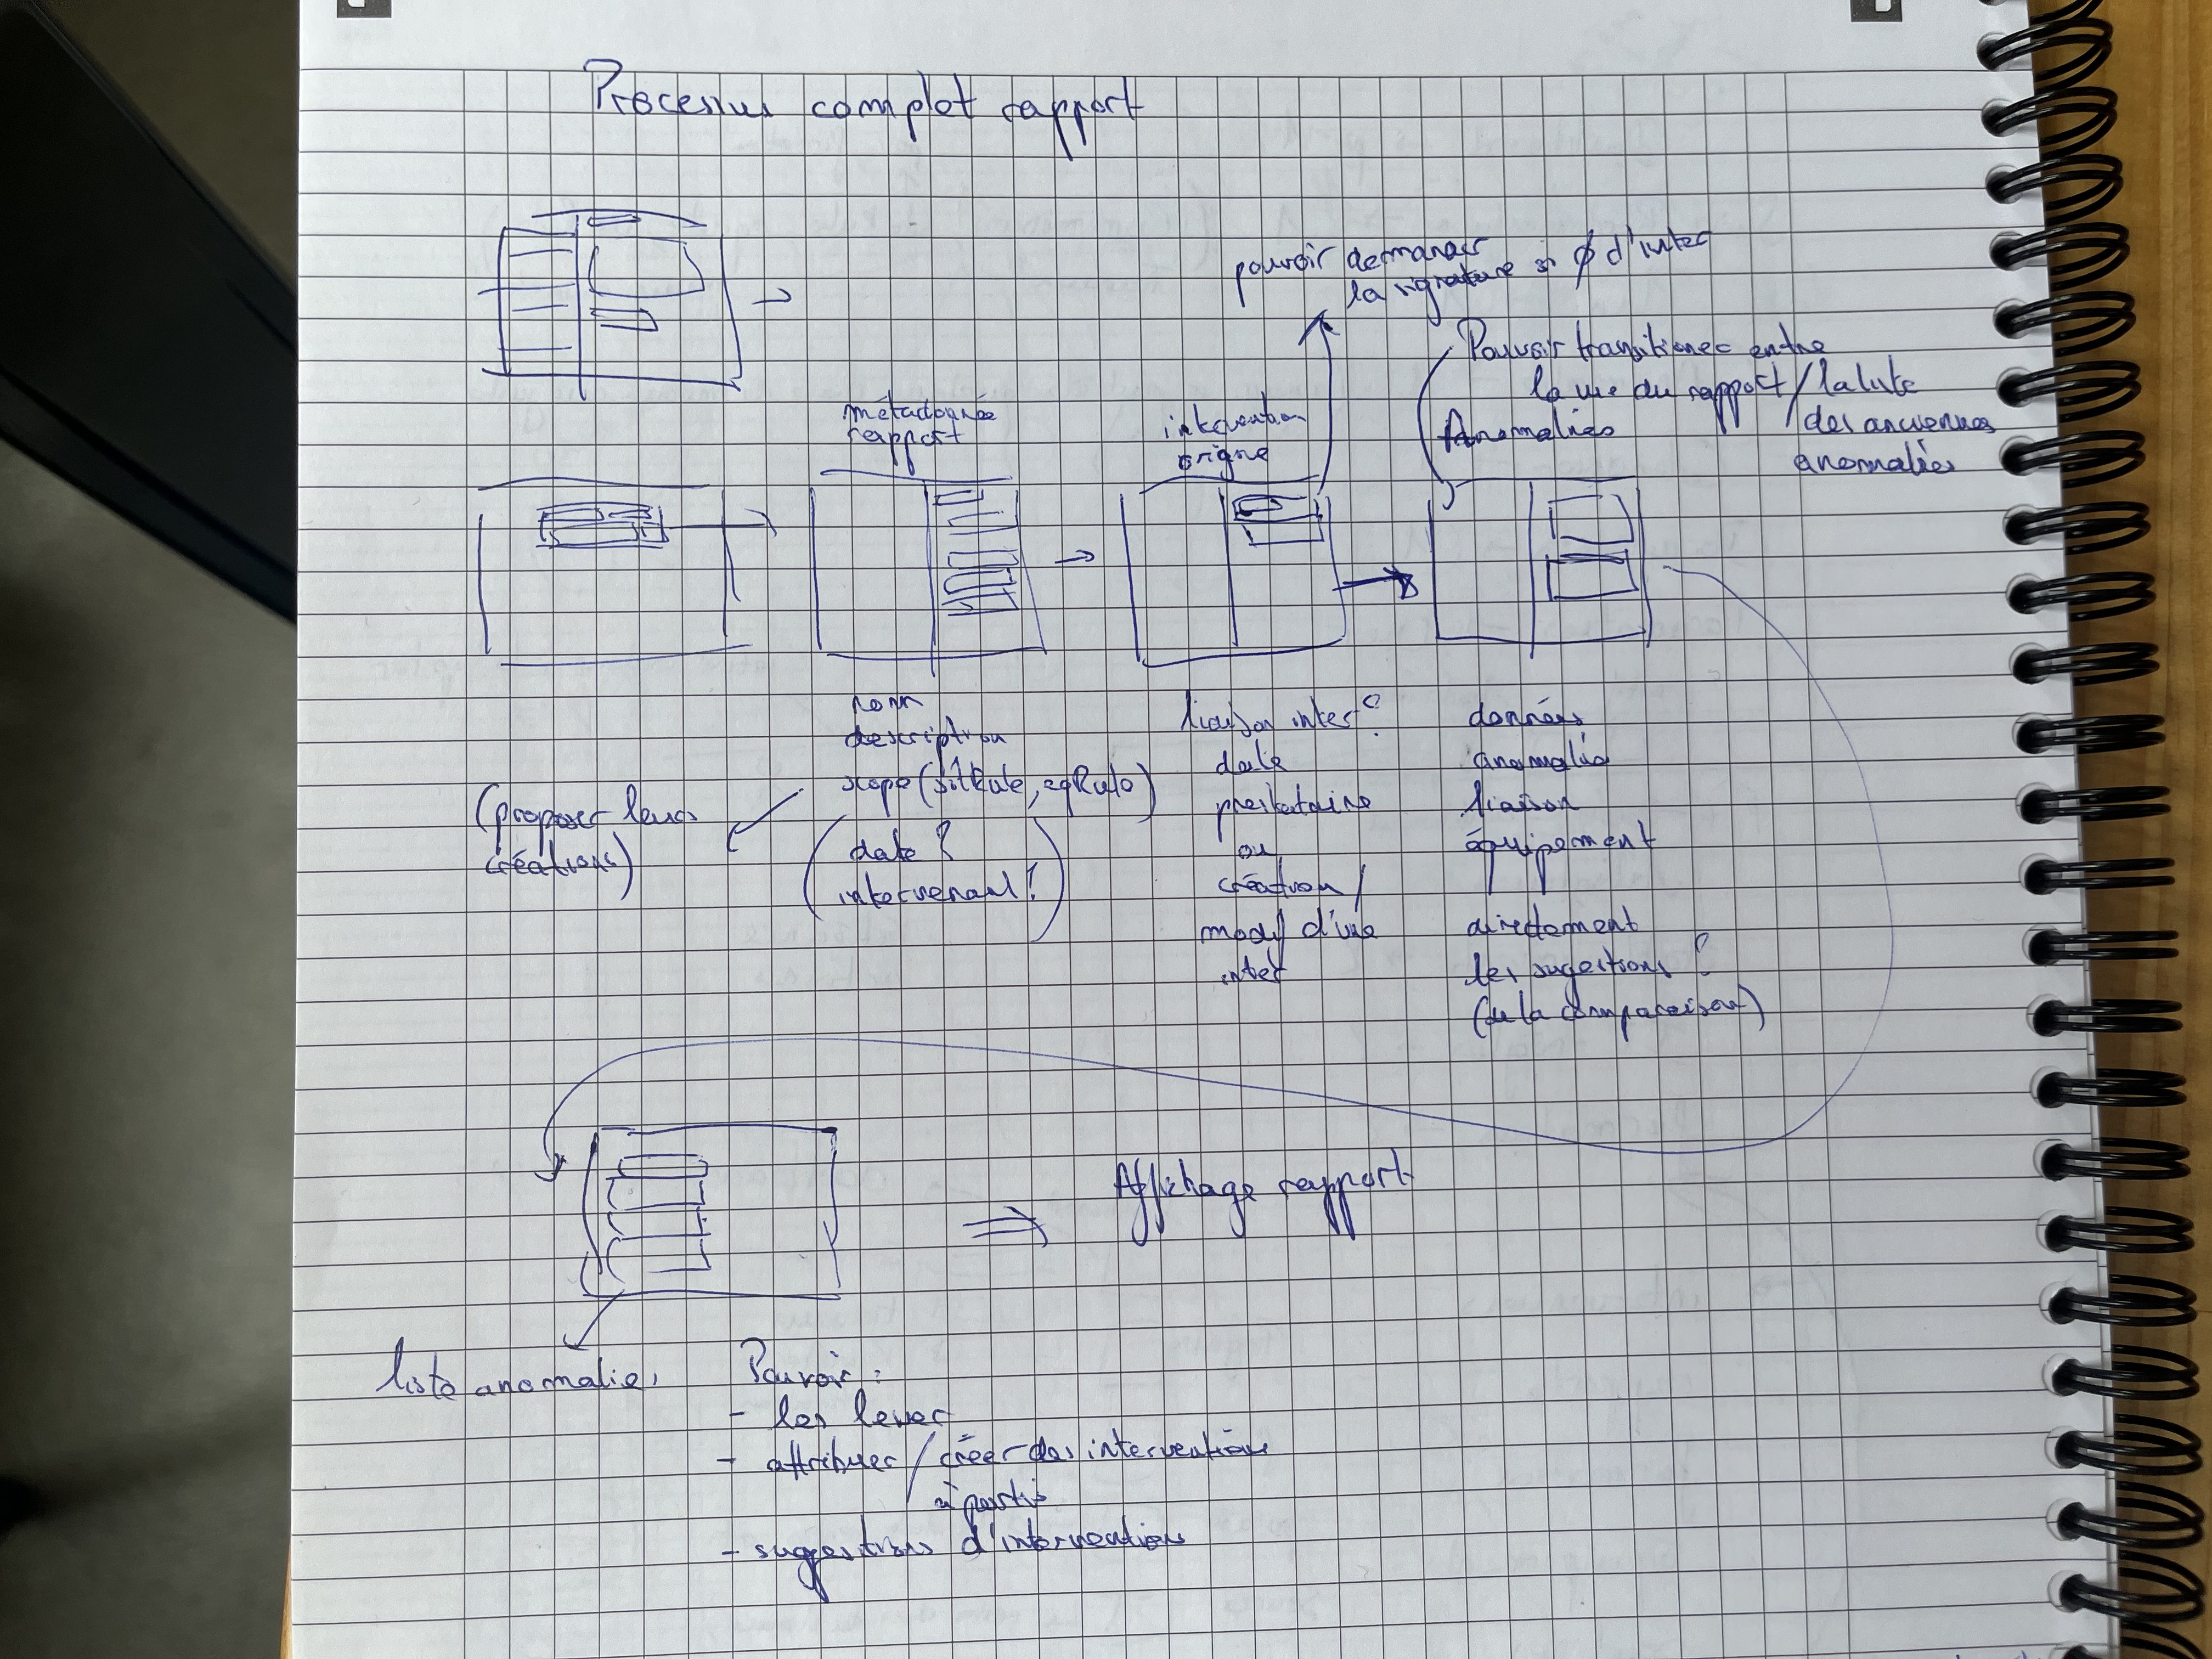 Processus complet rapport
pouvoir demander
la signature si ∅ d'inter
Pouvoir transitionner entre
la vue du rapport / la liste
des anciennes
anomalies
métadonnée
rapport
intervention
origine
Anomalies
nom
description
scope (
date ?
intervenant ?
(proposer leurs
créations)
liaison inter ?
date
prestataire
ou
création /
modif d'une
inter
données
anomalie
liaison
équipement
directement
les sugestions ?
(de la comparaison)
Affichage rapport
liste anomalie,
Pouvoir :
- les lever
- attribuer / créer des interventions
à partir
- suggestions d'interventions